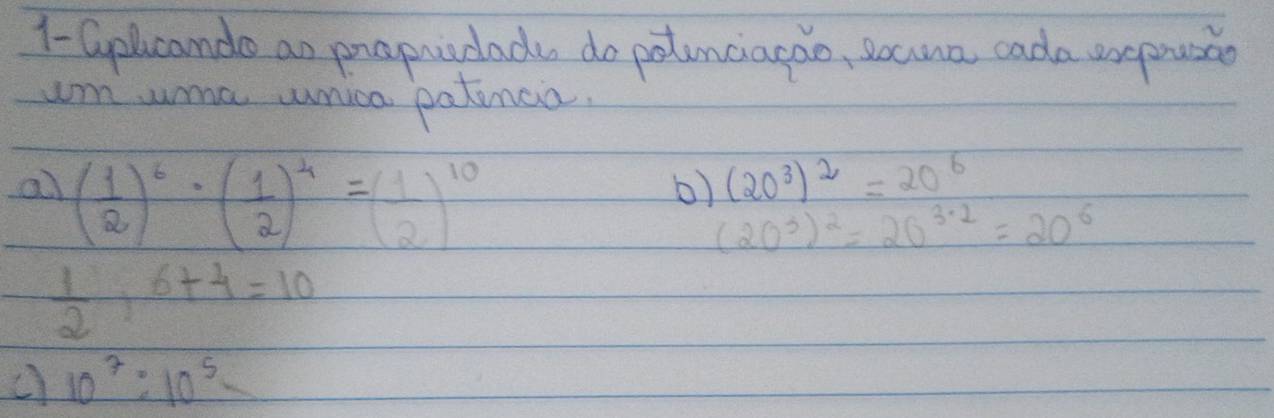 1- Aplicando as propriedades da potenciação, escreva cada expressão
em uma única potência.
a) (1/2)⁶ · (1/2)⁴ = (1/2)¹⁰ b) (20³)² = 20⁶
(20³)² = 20³·² = 20⁶
1/2, 6+4=10
c) 10⁷ : 10⁵